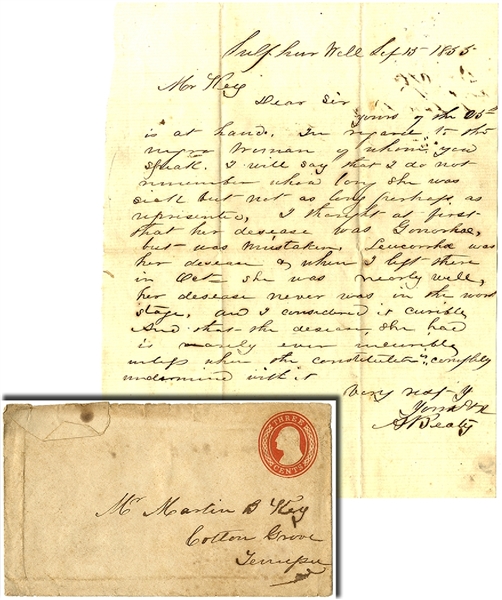 Sulphur Well Sep 15 1855
Mr Key
Dear Sir
yours of the 25th
is at hand. In regard to the
negro Woman of whom you
speak. I will say that I do not
remember how long she was
sick but not as long perhaps as
represented, I thought at first
that her desease was Gonorhœ,
but was mistaken, Leucorrhœ was
her desease & when I left there
in Oct she was nearly well,
her desease never was in the worst
stage, and I considered it curible
And that the desease she had
is rarely ever incurible
unless when the constitution is compleetly
undermind with it
Very respy
Yours &c
Beaty
THREE
CENTS
Mr Martin B Key
Cotton Grove
Tennessee